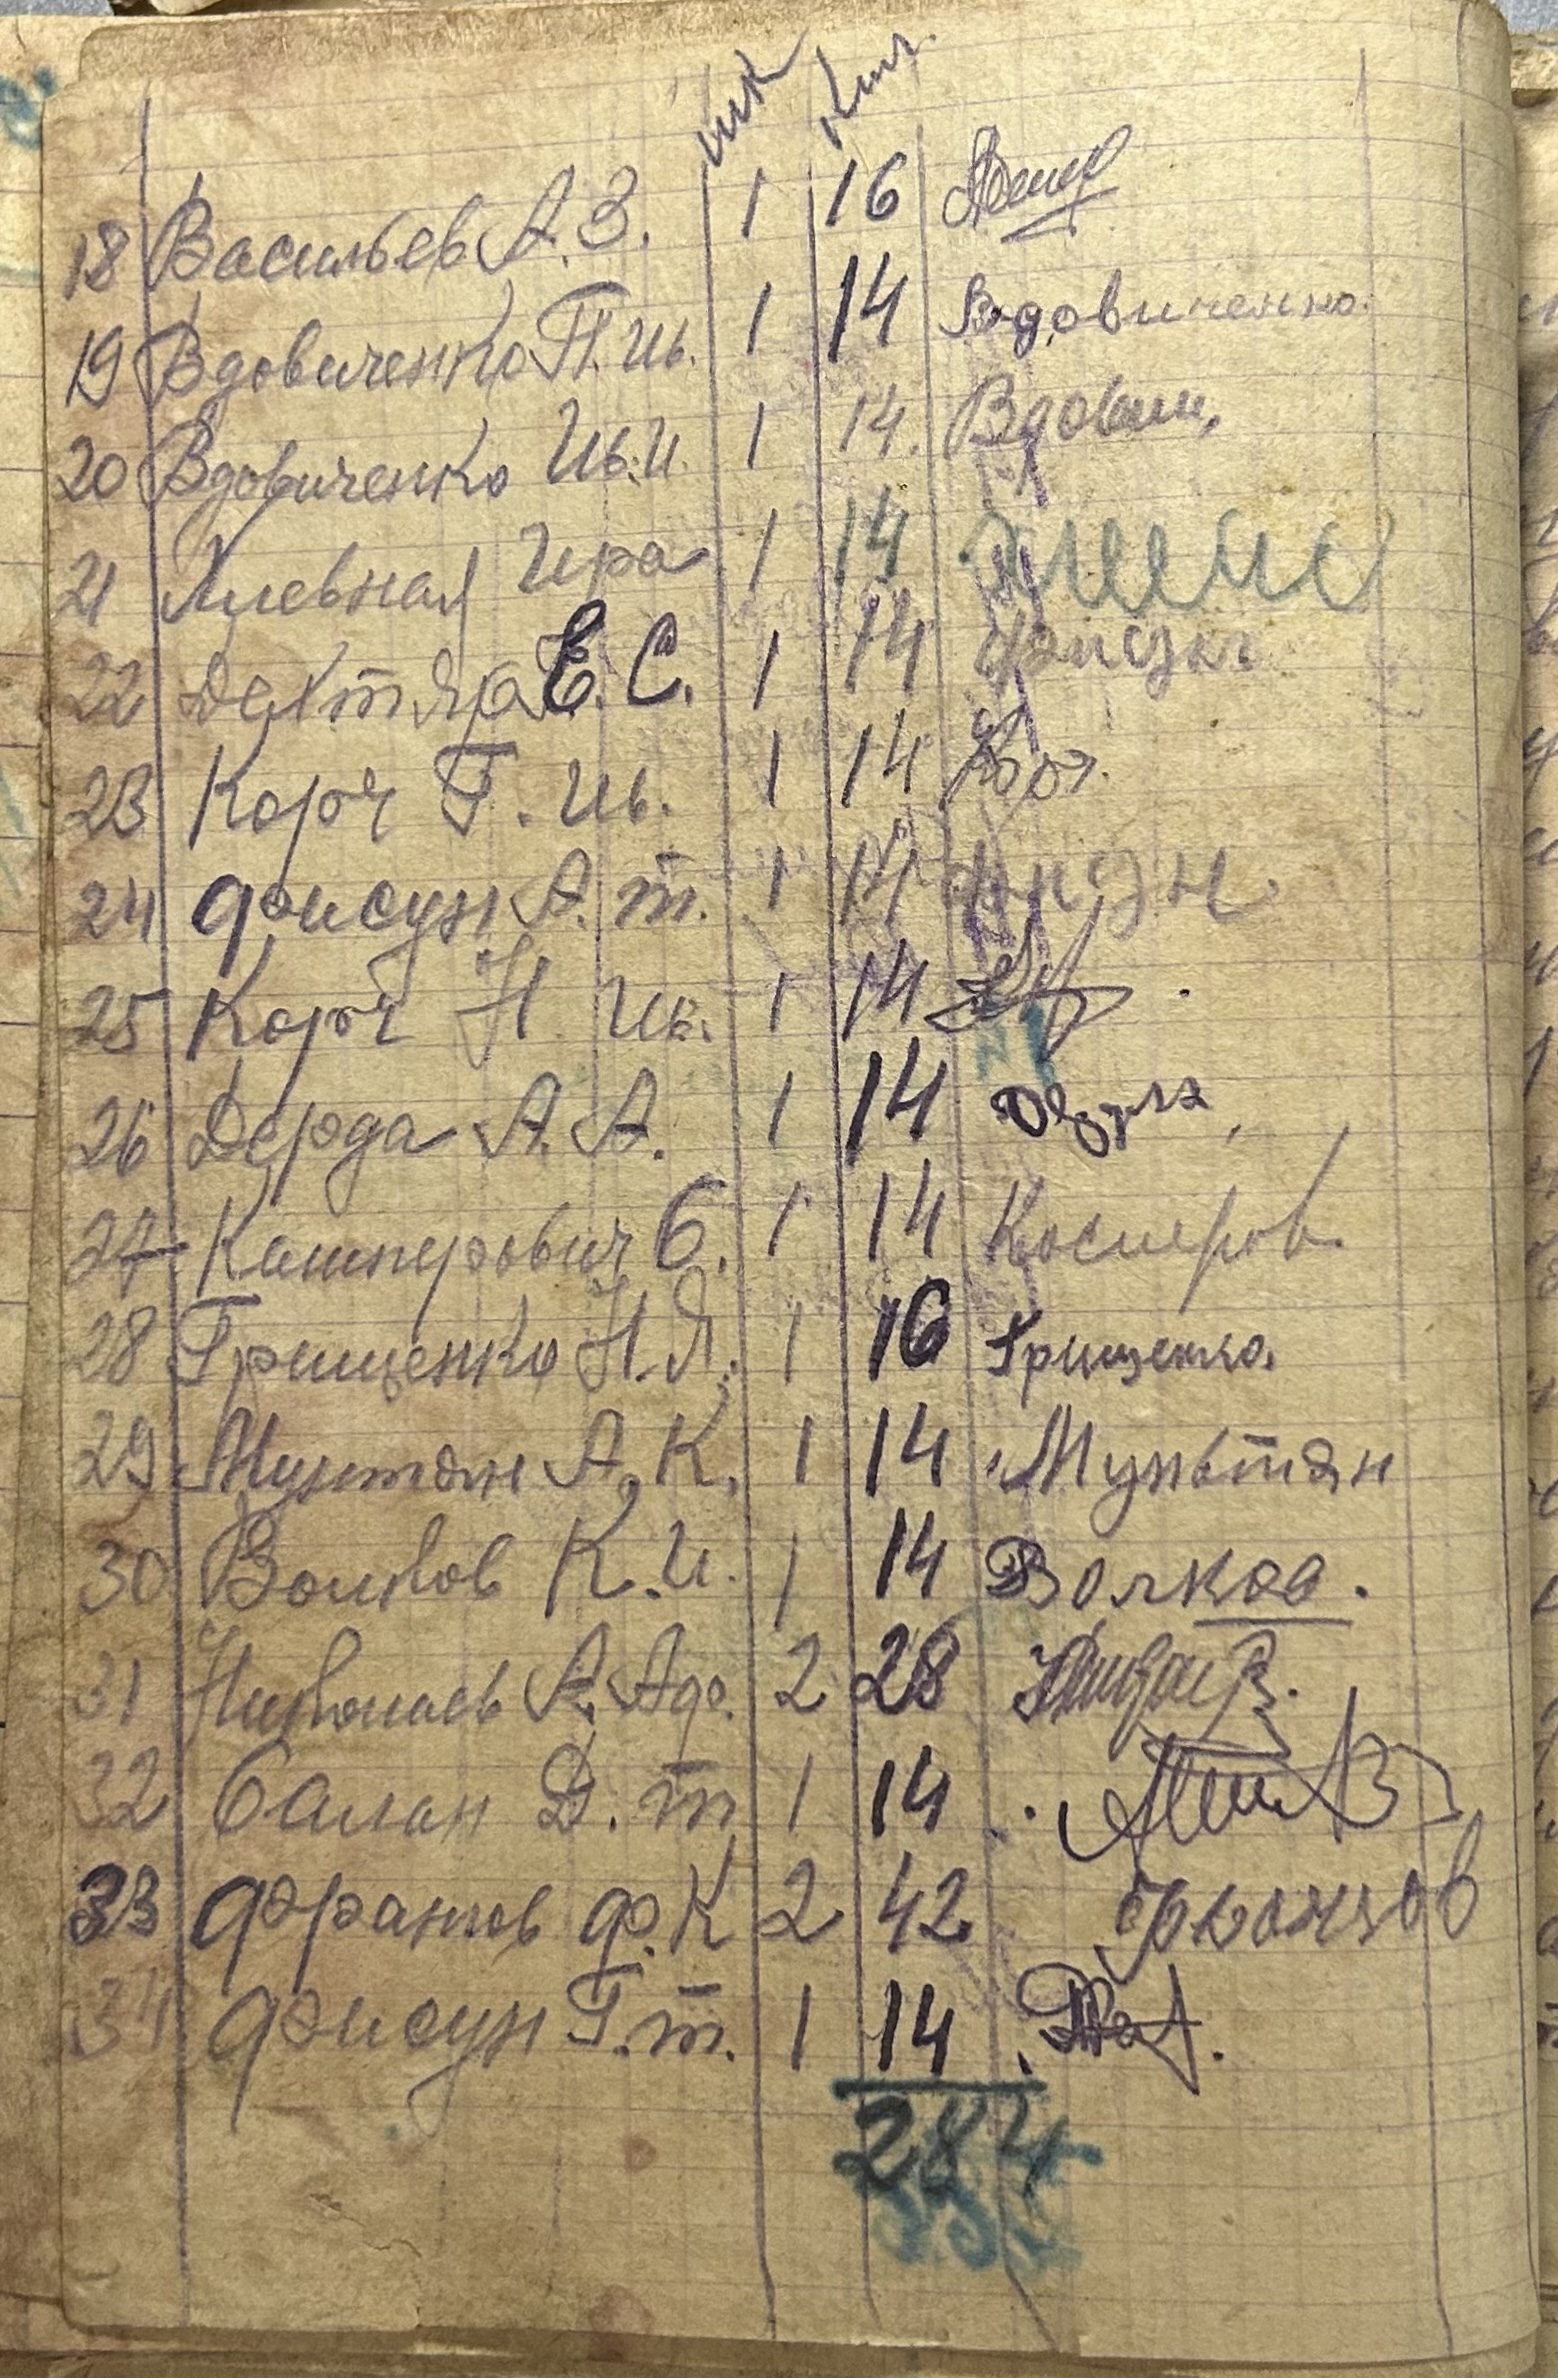 шк Кил.
18 Васильев А. З. 1 16
19 Вдовиченко П. Ив. 1 14 Вдовиченко.
20 Вдовиченко Ив. И. 1 14. Вдович,
21 Хлевная Ира 1 14
22 Дехтяр Е. С. 1 14
23 Корч Г. Ив. 1 14 Кор.
24 Фисун А. т. 1 14
25 Корч Н Ив. 1 14
26 Дерда А. А. 1 14
27 Кашперович Б. 1 14
28 Грищенко Н. Я. 1 16 Грищенко.
29 Мунтян А. К. 1 14 Мунътян
30 Волков К. И. 1 14 Волков.
31 Николаев А. 2 28
32 Балан Д. т 1 14
33 Франтов Ф. К 2 42
34 Фисун Г. т. 1 14
284